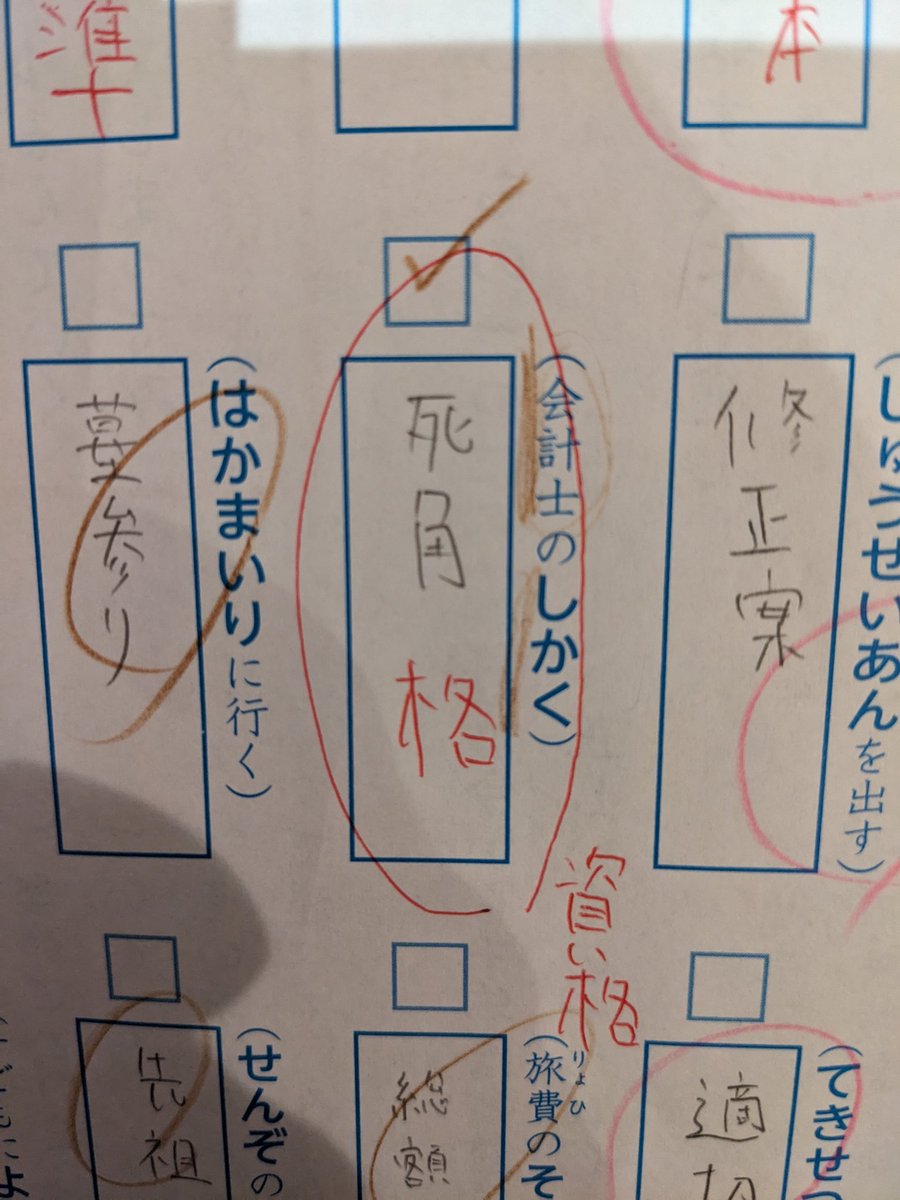 本
準
(しゅうせいあんを出す)
修正案
(会計士のしかく)
死角
格
資い格
(はかまいりに行く)
墓参り
(てきせつ
適切
(旅費のそ
りょひ
総額
(せんぞの
先祖